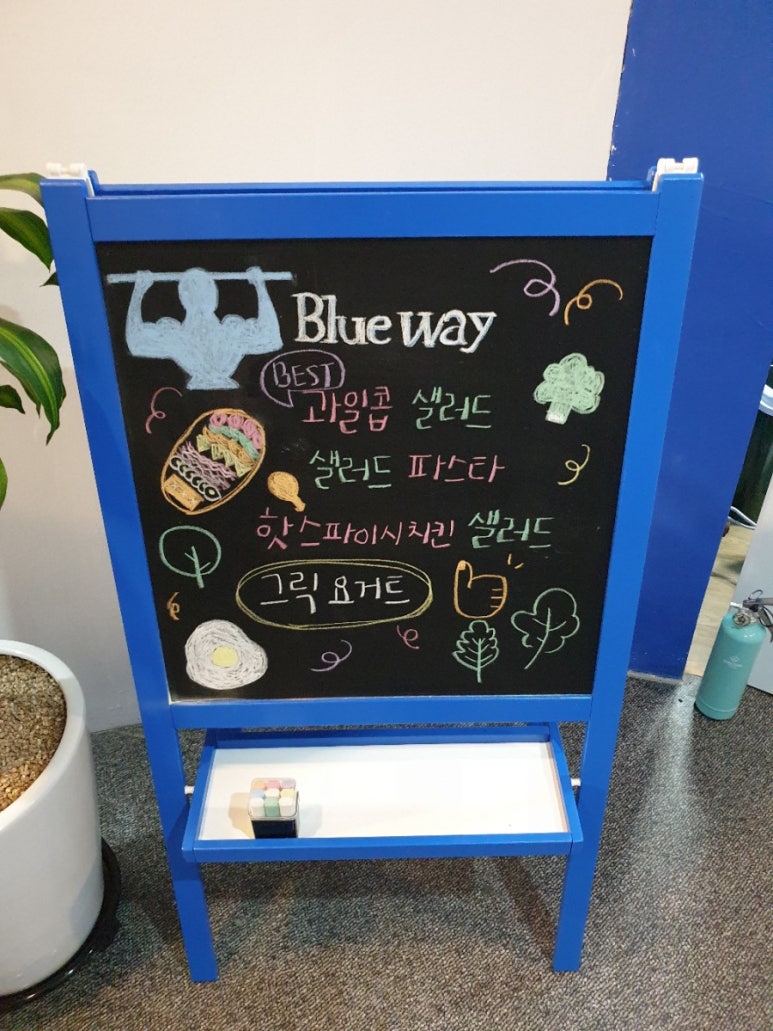 Blue way
BEST
과일콥 샐러드
샐러드 파스타
핫스파이시치킨 샐러드
그릭 요거트